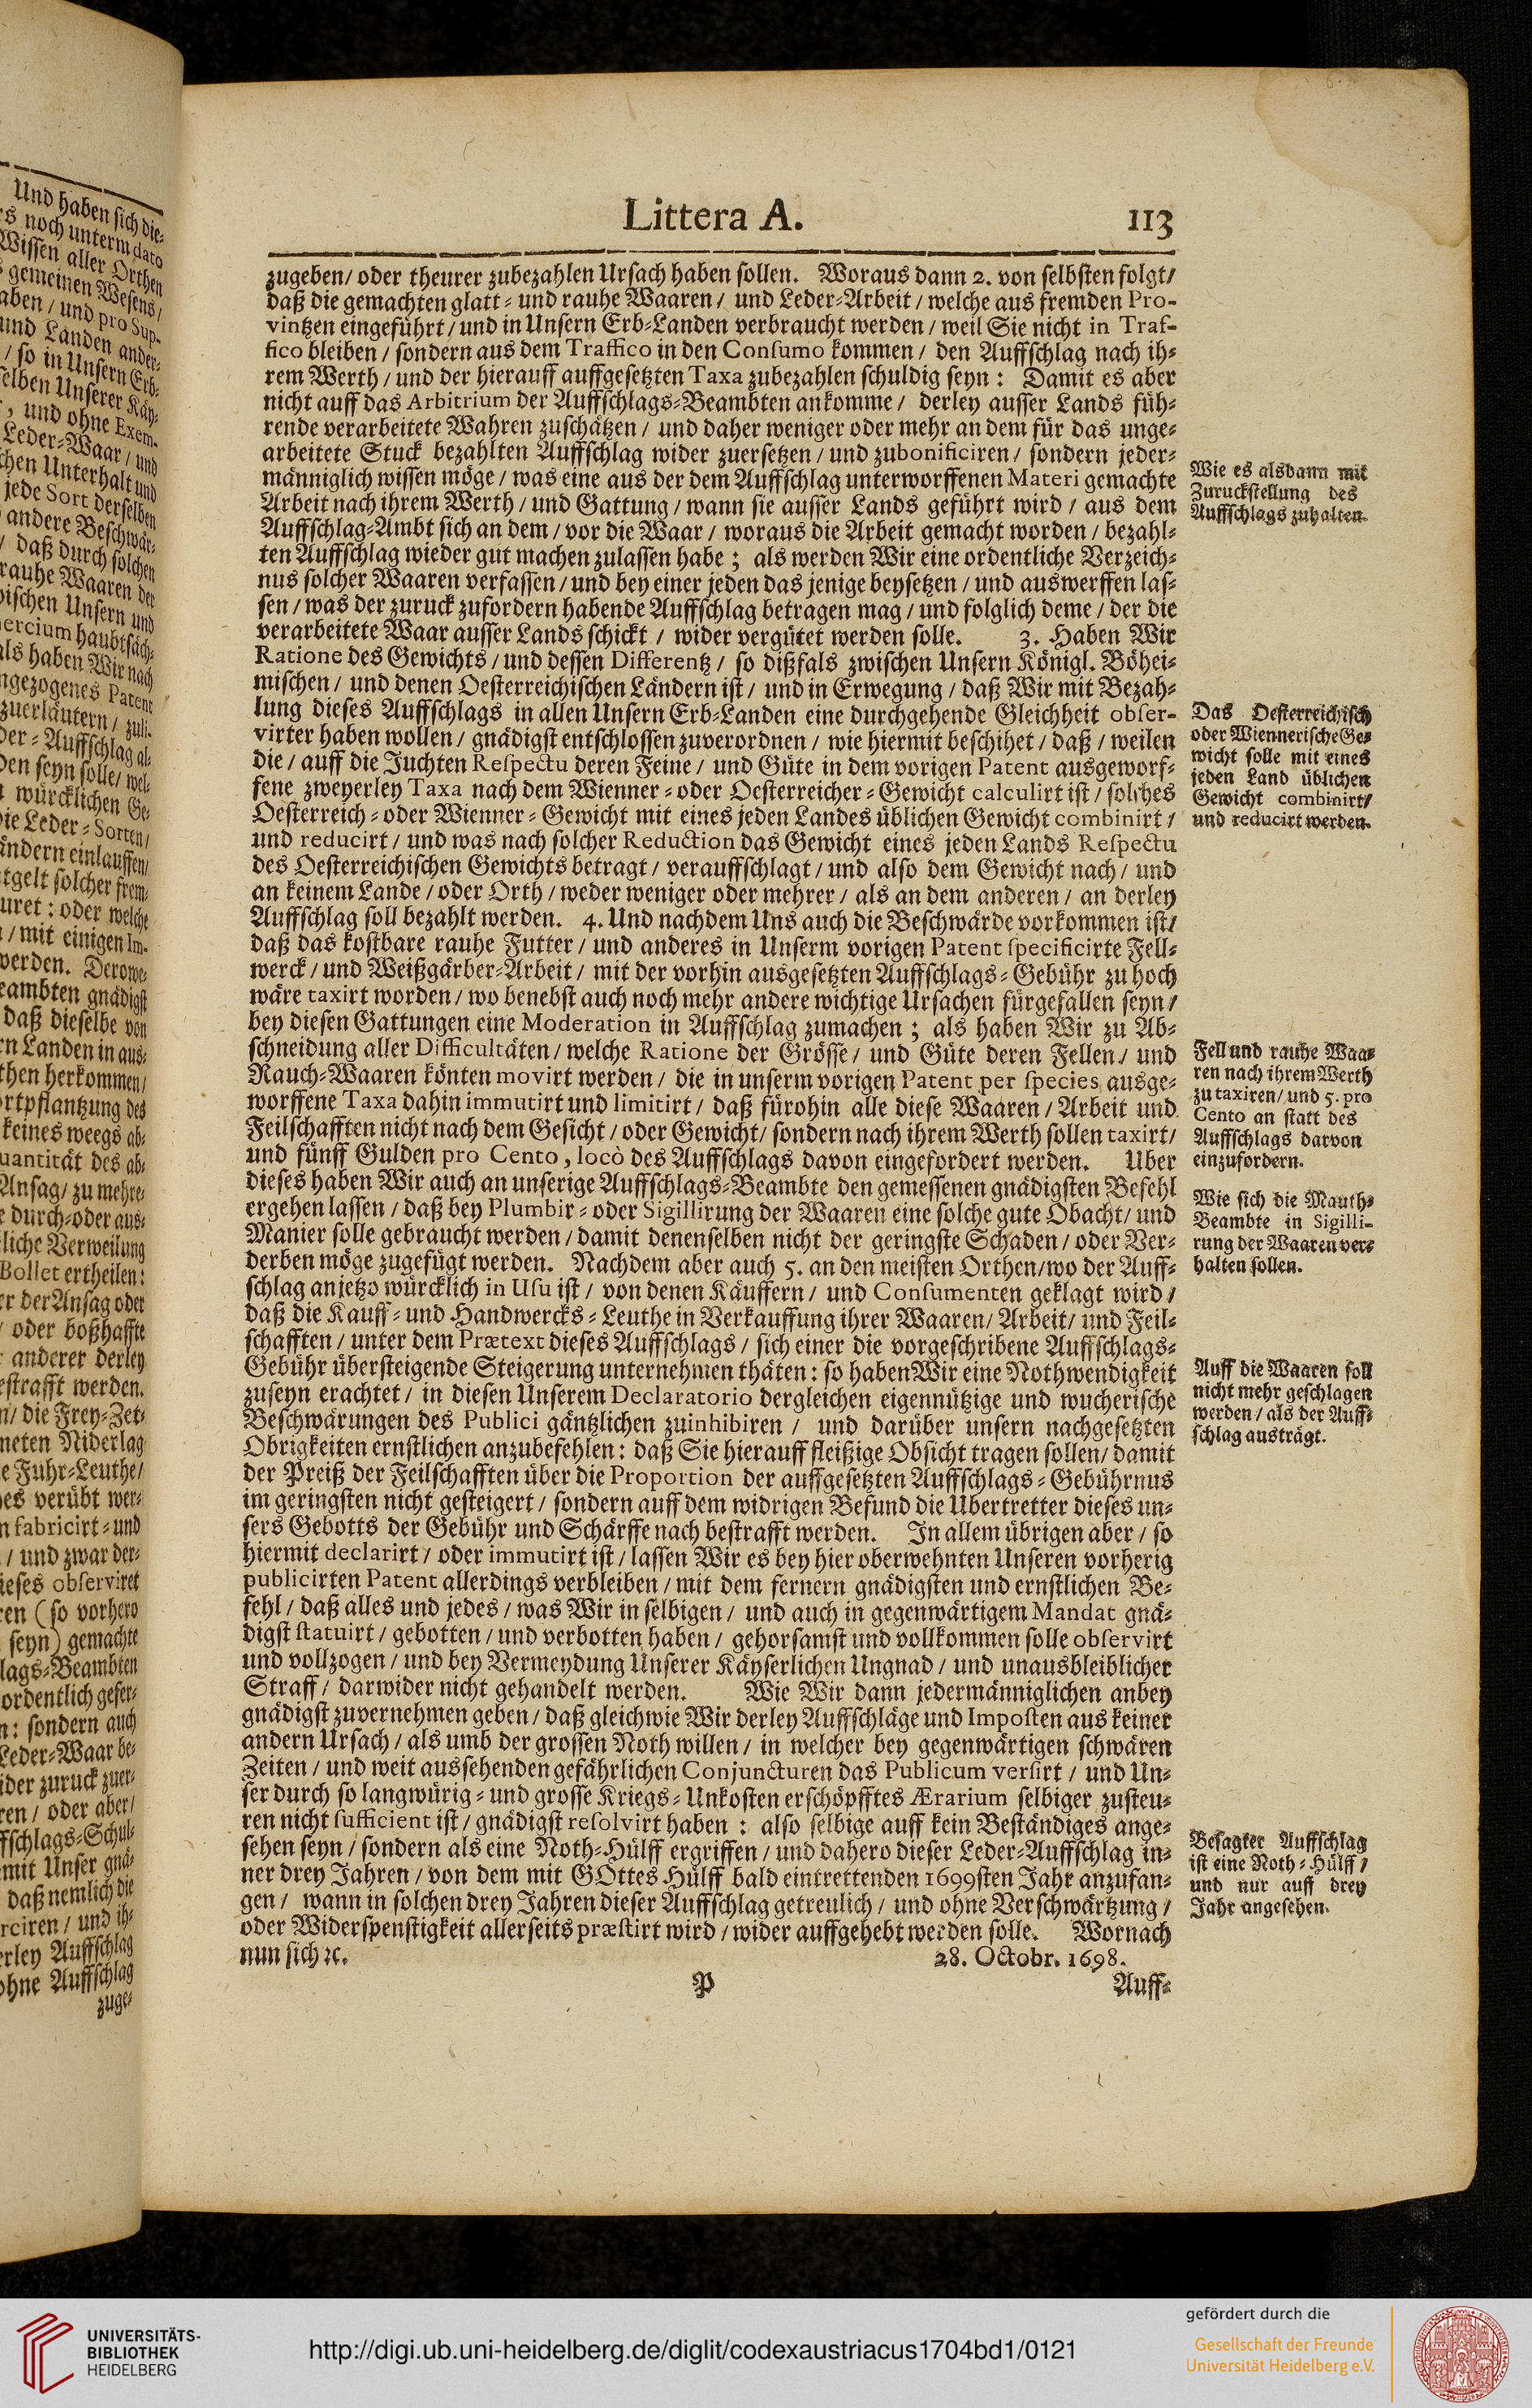 Littera A. 113
zugeben/ oder theurer zubezahlen Ursach haben sollen. Woraus dann 2. von selbsten folgt/
daß die gemachten glatt- und rauhe Waaren/ und Leder-Arbeit/ welche aus fremden Pro-
vintzen eingeführt/ und in Unsern Erb-Landen verbraucht werden/ weil Sie nicht in Traf-
fico bleiben/ sondern aus dem Traffico in den Consumo kommen/ den Auffschlag nach ih-
rem Werth/ und der hierauff auffgesetzten Taxa zubezahlen schuldig seyn: Damit es aber
nicht auff das Arbitrium der Auffschlags-Beambten ankomme/ derley ausser Lands füh-
rende verarbeitete Wahren zuschätzen/ und daher weniger oder mehr an dem für das unge-
arbeitete Stuck bezahlten Auffschlag wider zuersetzen/ und zubonificiren/ sondern jeder-
männiglich wissen möge/ was eine aus der dem Auffschlag unterworffenen Materi gemachte
Arbeit nach ihrem Werth/ und Gattung/ wann sie ausser Lands geführt wird/ aus dem
Auffschlag-Ambt sich an dem/ vor die Waar/ woraus die Arbeit gemacht worden/ bezahl-
ten Auffschlag wieder gut machen zulassen habe; als werden Wir eine ordentliche Verzeich-
nus solcher Waaren verfassen/ und bey einer jeden das jenige beysetzen/ und auswerffen las-
sen/ was der zuruck zufordern habende Auffschlag betragen mag/ und folglich deme/ der die
verarbeitete Waar ausser Lands schickt/ wider vergütet werden solle. 3. Haben Wir
Ratione des Gewichts/ und dessen Differentz/ so dißfals zwischen Unsern Königl. Böhei-
mischen/ und denen Oesterreichischen Ländern ist/ und in Erwegung/ daß Wir mit Bezah-
lung dieses Auffschlags in allen Unsern Erb-Landen eine durchgehende Gleichheit obser-
virter haben wollen/ gnädigst entschlossen zuverordnen/ wie hiermit beschihet/ daß/ weilen
die/ auff die Juchten Respectu deren Feine/ und Güte in dem vorigen Patent ausgeworf-
fene zweyerley Taxa nach dem Wienner- oder Oesterreicher-Gewicht calculirt ist/ solches
Oesterreich- oder Wienner-Gewicht mit eines jeden Landes üblichen Gewicht combinirt/
und reducirt/ und was nach solcher Reduction das Gewicht eines jeden Lands Respectu
des Oesterreichischen Gewichts betragt/ verauffschlagt/ und also dem Gewicht nach/ und
an keinem Lande/ oder Orth/ weder weniger oder mehrer/ als an dem anderen/ an derley
Auffschlag soll bezahlt werden. 4. Und nachdem Uns auch die Beschwärde vorkommen ist/
daß das kostbare rauhe Futter/ und anderes in Unserm vorigen Patent specificirte Fell-
werck/ und Weißgärber-Arbeit/ mit der vorhin ausgesetzten Auffschlags-Gebühr zu hoch
wäre taxirt worden/ wo benebst auch noch mehr andere wichtige Ursachen fürgefallen seyn/
bey diesen Gattungen eine Moderation in Auffschlag zumachen; als haben Wir zu Ab-
schneidung aller Difficultäten/ welche Ratione der Grösse/ und Güte deren Fellen/ und
Rauch-Waaren könten movirt werden/ die in unserm vorigen Patent per species ausge-
worffene Taxa dahin immutirt und limitirt/ daß fürohin alle diese Waaren/ Arbeit und
Feilschafften nicht nach dem Gesicht/ oder Gewicht/ sondern nach ihrem Werth sollen taxirt/
und fünff Gulden pro Cento, locò des Auffschlags davon eingefordert werden. Uber
dieses haben Wir auch an unserige Auffschlags-Beambte den gemessenen gnädigsten Befehl
ergehen lassen/ daß bey Plumbir- oder Sigillirung der Waaren eine solche gute Obacht/ und
Manier solle gebraucht werden/ damit denenselben nicht der geringste Schaden/ oder Ver-
derben möge zugefügt werden. Nachdem aber auch 5. an den meisten Orthen/ wo der Auff-
schlag anjetzo würcklich in Usu ist/ von denen Käuffern/ und Consumenten geklagt wird/
daß die Kauff- und Handwercks-Leuthe in Verkauffung ihrer Waaren/ Arbeit/ und Feil-
schafften/ unter dem Prætext dieses Auffschlags/ sich einer die vorgeschribene Auffschlags-
Gebühr übersteigende Steigerung unternehmen thäten: so haben Wir eine Nothwendigkeit
zuseyn erachtet/ in diesen Unserem Declaratorio dergleichen eigennützige und wucherische
Beschwärungen des Publici gäntzlichen zuinhibiren/ und darüber unsern nachgesetzten
Obrigkeiten ernstlichen anzubefehlen: daß Sie hierauff fleißige Obsicht tragen sollen/ damit
der Preiß der Feilschafften über die Proportion der auffgesetzten Auffschlags-Gebührnus
im geringsten nicht gesteigert/ sondern auff dem widrigen Befund die Ubertretter dieses un-
sers Gebotts der Gebühr und Schärffe nach bestrafft werden. In allem übrigen aber/ so
hiermit declarirt/ oder immutirt ist/ lassen Wir es bey hier oberwehnten Unseren vorherig
publicirten Patent allerdings verbleiben/ mit dem fernern gnädigsten und ernstlichen Be-
fehl/ daß alles und jedes/ was Wir in selbigen/ und auch in gegenwärtigem Mandat gnä-
digst statuirt/ gebotten/ und verbotten haben/ gehorsamst und vollkommen solle observirt
und vollzogen/ und bey Vermeydung Unserer Käyserlichen Ungnad/ und unausbleiblicher
Straff/ darwider nicht gehandelt werden. Wie Wir dann jedermänniglichen anbey
gnädigst zuvernehmen geben/ daß gleichwie Wir derley Auffschläge und Imposten aus keiner
andern Ursach/ als umb der grossen Noth willen/ in welcher bey gegenwärtigen schwären
Zeiten/ und weit aussehenden gefährlichen Conjuncturen das Publicum versirt/ und Un-
ser durch so langwürig- und grosse Kriegs-Unkosten erschöpfftes Ærarium selbiger zusteu-
ren nicht sufficient ist/ gnädigst resolvirt haben: also selbige auff kein Beständiges ange-
sehen seyn/ sondern als eine Noth-Hülff ergriffen/ und dahero dieser Leder-Auffschlag in-
ner drey Jahren/ von dem mit GOttes Hülff bald eintrettenden 1699sten Jahr anzufan-
gen/ wann in solchen drey Jahren dieser Auffschlag getreulich/ und ohne Verschwärtzung/
oder Widerspenstigkeit allerseits præstirt wird/ wider auffgehebt werden solle. Wornach
nun sich ꝛc. 28. Octobr. 1698.
P Auff-
Wie es alsdann mit
Zuruckstellung des
Auffschlags zuhalten.
Das Oesterreichisch
oder Wiennerische Ge-
wicht solle mit eines
jeden Land üblichen
Gewicht combinirt/
und reducirt werden.
Fell und rauhe Waa-
ren nach ihrem Werth
zu taxiren/ und 5. pro
Cento an statt des
Auffschlags darvon
einzufordern.
Wie sich die Mauth-
Beambte in Sigilli-
rung der Waaren ver-
halten sollen.
Auff die Waaren soll
nicht mehr geschlagen
werden/ als der Auff-
schlag austrägt.
Besagter Auffschlag
ist eine Noth-Hülff/
und nur auff drey
Jahr angesehen.
Und haben sich die-
noch unterm dato
Wissen aller Orthen
gemeinen Wesens/
aben/ und pro Sup-
und Landen ander-
/ so in Unsern Erb-
elben Unserer Käy-
, und ohne Exem-
Leder-Waar/ und
chen Unterhalt und
jede Sort derselben
andere Beschwär-
/ daß durch solchen
rauhe Waaren der
ischen Unsern und
ercium haubtsäch-
als haben Wir nach
gezogenes Patent
zuerläutern/ zuli-
der-Auffschlag al-
den seyn solle/ wel-
würcklichen Ge-
ie Leder-Sorten/
ändern einlauffen/
tgelt solcher frem-
uret: oder welche
/ mit einigen Im-
werden. Derowe-
eambten gnädigst
daß dieselbe von
rn Landen in aus-
then herkommen/
rtpflantzung des
keines weegs ab-
uantität des ab-
Ansag/ zu mehre-
durch-oder aus-
liche Verweilung
Bollet ertheilen:
er der Ansag oder
/ oder boßhaffte
anderer derley
estrafft werden.
n/ die Frey-Zet-
neten Niderlag
e Fuhr-Leuthe/
es verübt wer-
n fabricirt- und
/ und zwar der-
ieses observiret
en (so vorhero
seyn) gemachte
lags-Beambten
ordentlich gefer-
n: sondern auch
Leder-Waar be-
ider zuruck zuer-
ren/ oder aber/
ffschlags-Schul-
mit Unser gnä-
daß nemlich die
rciren/ und ih-
erley Auffschlag
ohne Auffschlag
zuge-
UNIVERSITÄTS-
BIBLIOTHEK
HEIDELBERG
http://digi.ub.uni-heidelberg.de/diglit/codexaustriacus1704bd1/0121
gefördert durch die
Gesellschaft der Freunde
Universität Heidelberg e.V.